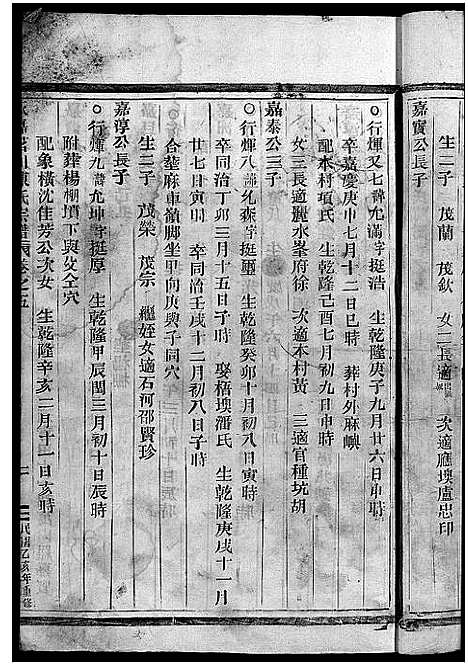 生二子 茂蘭 茂欽 女二長適 次適應墺盧忠印
嘉實公長子
○行煇又七諱允滿字挺浩 生乾隆庚子九月廿六日申時
卒嘉慶庚申七月十二日巳時 葬村外麻㠘
配本村項氏 生乾隆己酉七月初九日申時
女三長適麗水峯府徐 次適本村黃 三適官種坑胡
嘉泰公三子
○行煇八諱允森字挺璽 生乾隆癸卯十月初八日寅時
卒同治丁卯三月十五日子時 娶梧墺潘氏 生乾隆庚戌十一月
廿七日寅時 卒同治壬戌十二月初八日子時
合塟麻車嶺脚坐甲向庚與子同穴
生二子 茂榮 茂宗 繼姪女適石河邵賢珍
嘉淳公長子
○行煇九諱允坤字挺厚 生乾隆甲辰閏三月初十日辰時
附葬楊棚墳下與父仝穴
配象橫沈佳芳公次女 生乾隆辛亥二月十一日亥時
民國乙亥年重修